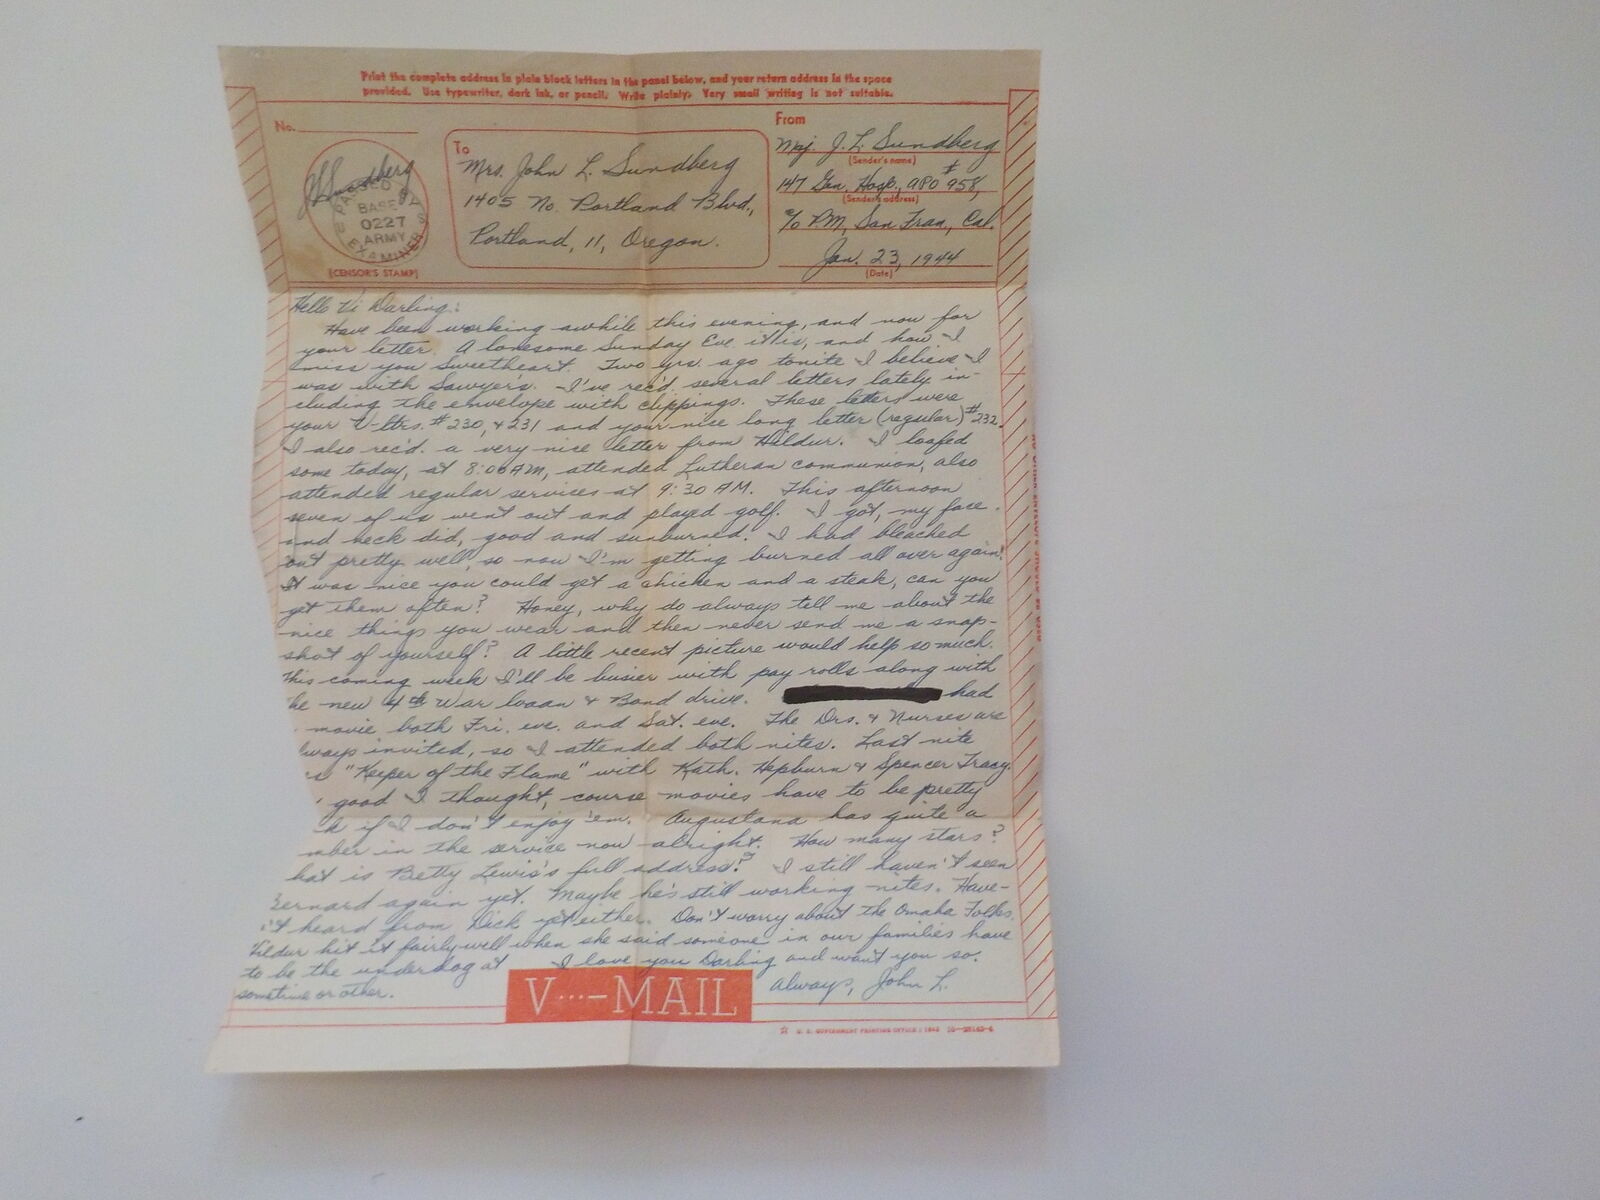 Print the complete address in plain block letters in the panel below, and your return address in the space
provided. Use typewriter, dark ink, or pencil. Write plainly. Very small writing is not suitable.
No.
J L Sundberg
PASSED BY
BASE
0227
ARMY
EXAMINER
(CENSOR'S STAMP)
To
Mrs. John L. Sundberg
1405 No. Portland Blvd.,
Portland, 11, Oregon.
From
Maj. J. L. Sundberg
(Sender's name)
147 Gen. Hosp., APO #958,
(Sender's address)
c/o P.M., San Fran., Cal.
Jan. 23, 1944
(Date)
Hello Vi Darling:
Have been working awhile this evening, and now for
your letter. A lonesome Sunday Eve. it is, and how I
miss you Sweetheart. Two yrs. ago tonite I believe I
was with Sawyer's. I've rec'd. several letters lately in-
cluding the envelope with clippings. These letters were
your V-ltrs. #230, & 231 and your nice long letter (regular) #232.
I also rec'd. a very nice letter from Hildur. I loafed
some today, at 8:00 AM, attended Lutheran communion, also
attended regular services at 9:30 AM. This afternoon
seven of us went out and played golf. I got, my face
and neck did, good and sunburned. I had bleached
out pretty well, so now I'm getting burned all over again!
It was nice you could get a chicken and a steak, can you
get them often? Honey, why do always tell me about the
nice things you wear and then never send me a snap-
shot of yourself? A little recent picture would help so much.
This coming week I'll be busier with pay rolls along with
he new 4th War Loan & Bond drive. had
movie both Fri. eve. and Sat. eve. The Drs. & Nurses are
lways invited, so I attended both nites. Last nite
as "Keeper of the Flame" with Kath. Hepburn & Spencer Tracy.
good I thought, course movies have to be pretty
if I don't enjoy 'em. Augustana has quite a
mber in the service now alright. How many stars?
hat is Betty Lewis's full address? I still haven't seen
Bernard again yet. Maybe he's still working nites. Have-
n't heard from Dick yet either. Don't worry about the Omaha Folks.
Hildur hit it fairly well when she said someone in our families have
to be the underdog at I love you Darling and want you so.
sometime or other. Always, John L.
V···—MAIL
U. S. GOVERNMENT PRINTING OFFICE : 1943 16—28143-4